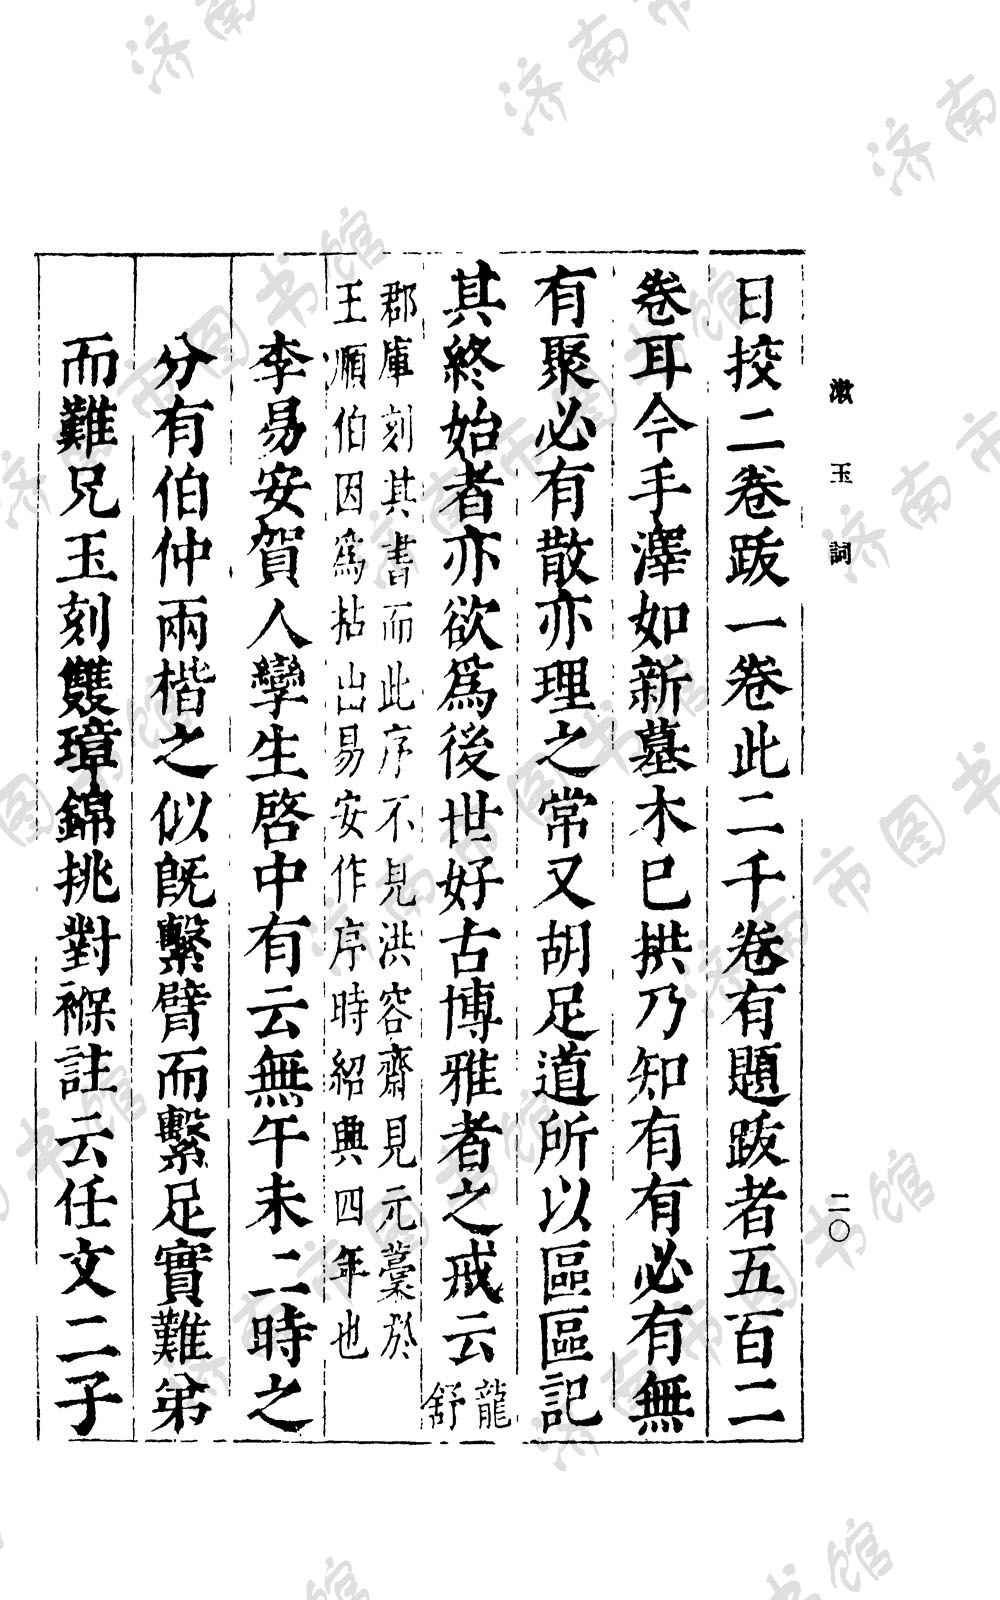 漱玉詞
二〇
日挍二卷跋一卷此二千卷有題跋者五百二
卷耳今手澤如新墓木已拱乃知有有必有無
有聚必有散亦理之常又胡足道所以區區記
其終始者亦欲爲後世好古博雅者之戒云龍舒
郡庫刻其書而此序不見洪容齋見元藁於
王順伯因爲拈出易安作序時紹興四年也
李易安賀人孿生啓中有云無午未二時之
分有伯仲兩楷之似旣繫臂而繫足實難弟
而難兄玉刻雙璋錦挑對褓註云任文二子
济南市图书馆
济南市图书馆
济南市图书馆
济南市图书馆
济南市图书馆